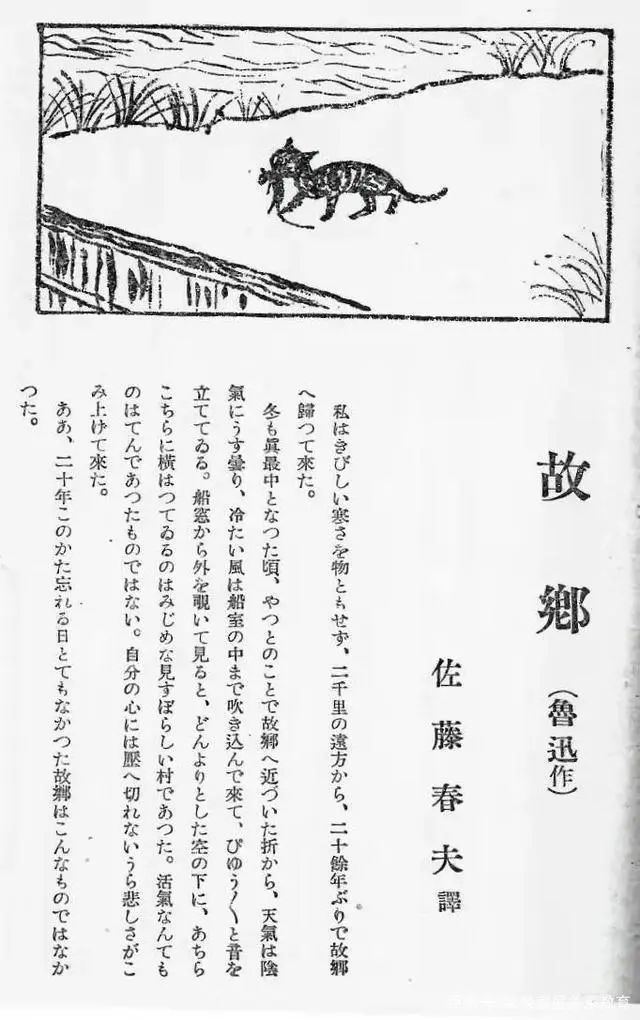 故鄉
(魯迅作)
佐藤春夫譯
私はきびしい寒さを物ともせず、二千里の遠方から、二十餘年ぶりで故鄉
へ歸つて來た。
冬も眞最中となつた頃、やつとのことで故鄉へ近づいた折から、天氣は陰
氣にうす曇り、冷たい風は船室の中まで吹き込んで來て、ぴゆう〳〵と音を
立ててゐる。船窓から外を覗いて見ると、どんよりとした空の下に、あちら
こちらに橫はつてゐるのはみじめな見すぼらしい村であつた。活氣なんても
のはてんであつたものではない。自分の心には壓へ切れないうら悲しさがこ
み上げて來た。
ああ、二十年このかた忘れる日とてもなかつた故鄉はこんなものではなか
つた。